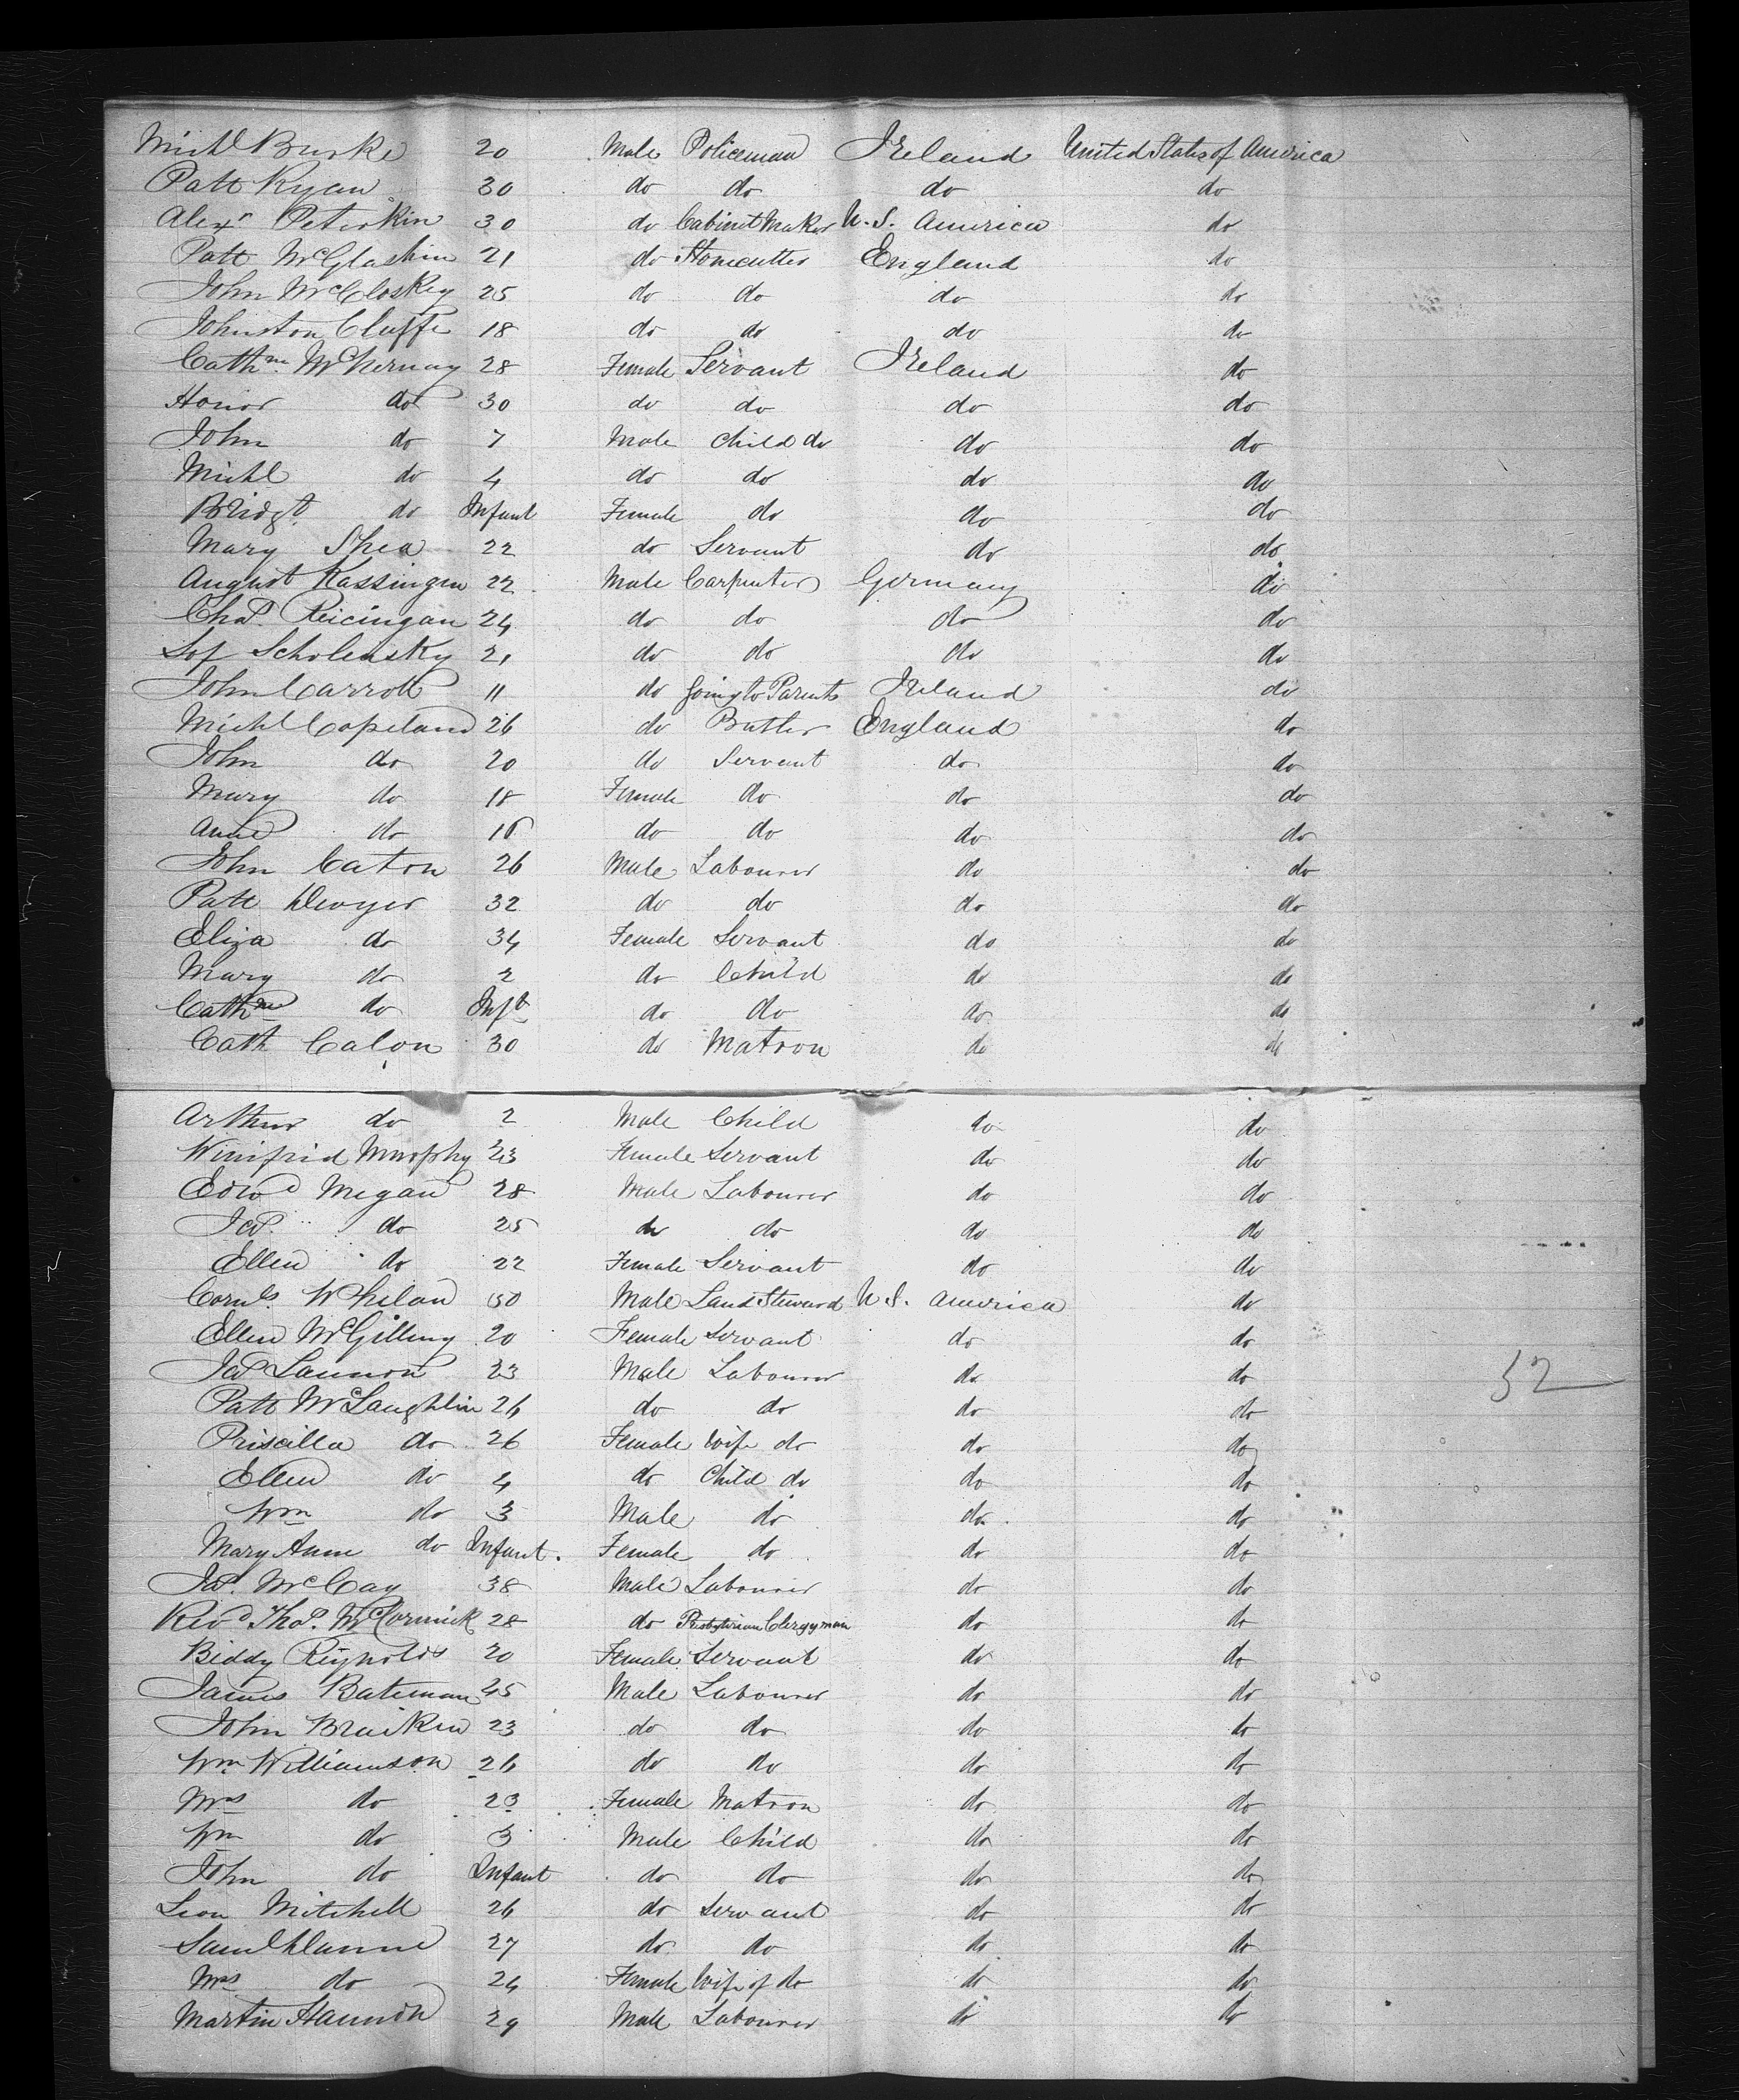 Michl Burke 20 Male Policeman Ireland United States of America
Patt Ryan 30 do do do do
Alexr Peterkin 30 do Cabinet Maker U.S. America do
Patt McGlashin 21 do Stonecutter England do
John McCloskey 25 do do do do
Johnston Cluffe 18 do do do do
Cathne McKernay 28 Female Servant Ireland do
Honor do 30 do do do do
John do 7 Male Child do do do
Michl do 4 do do do do
Bridgt do Infant Female do do do
Mary Shea 22 do Servant do do
August Kassingen 22 Male Carpenter Germany do
Chas. Reicingan 24 do do do do
Scholensky 21 do do do do
John Carroll 11 do Going to Parents Ireland do
Michl Copeland 26 do Butler England do
John do 20 do Servant do do
Mary do 18 Female do do do
Anne do 16 do do do do
John Caton 26 Male Labourer do do
Patt Dwyer 32 do do do do
Eliza do 34 Female Servant do do
Mary do 2 do Child do do
Cathne do Inft do do do do
Cath Calon 30 do Matron do do
Arthur do 2 Male Child do do
Winifrid Murphy 23 Female Servant do do
Edwd Megan 28 Male Labourer do do
Jas. do 25 do do do do
Ellen do 22 Female Servant do do
Cornls. Whelan 50 Male Land Steward U.S. America do
Ellen McGilling 20 Female Servant do do
Jas Lannon 23 Male Labourer do do
Patt McLaughlin 26 do do do do
Priscilla do 26 Female Wife do do do
Ellen do 4 do Child do do do
Wm do 3 Male do do do
Mary Anne do Infant. Female do do do
Jas. McCay 38 Male Labourer do do
Revd Thos. McCormick 28 do Presbyterian Clergyman do do
Biddy Reynolds 20 Female Servant do do
James Bateman 45 Male Labourer do do
John Braiken 23 do do do do
Wm Williamson 26 do do do do
Mrs do 23 Female Matron do do
Wm do 3 Male Child do do
John do Infant do do do do
Leon Mitchell 26 do Servant do do
Saml Dunne 27 do do do do
Mrs do 24 Female Wife of do do do
Martin Hannon 29 Male Labourer do do
52